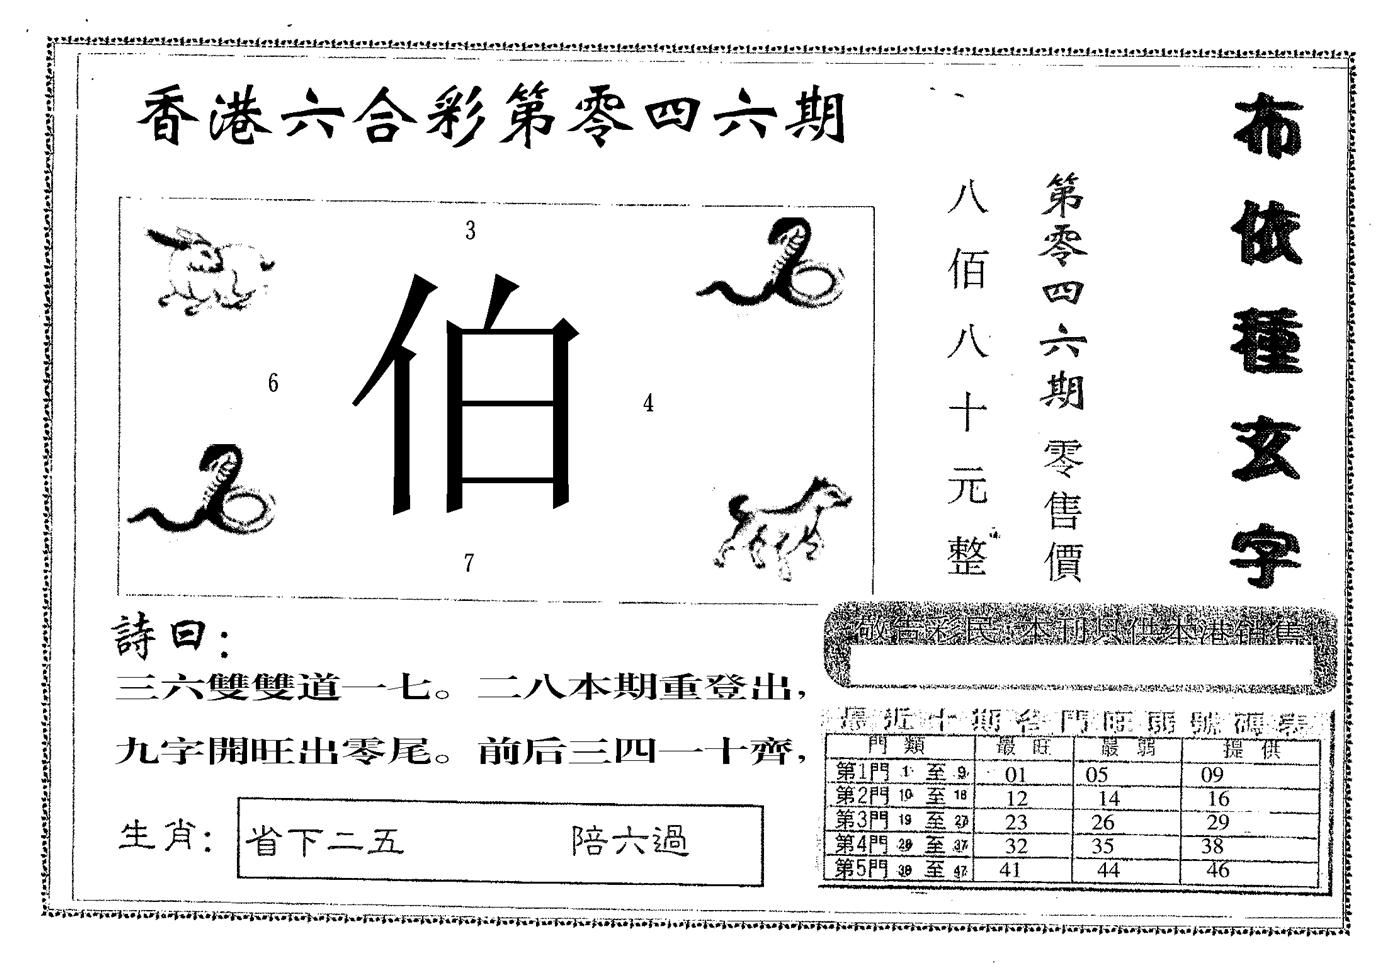 香港六合彩第零四六期
布依種玄字
第零四六期零售價
八佰八十元整
3
6
伯
4
7
詩曰：
三六雙雙道一七。二八本期重登出，
九字開旺出零尾。前后三四一十齊，
生肖：省下二五 陪六過
敬告彩民：本刊只供本港销售
最近十期各門旺弱號碼表
門類 最旺 最弱 提供
第1門 1 至 9 01 05 09
第2門 10 至 18 12 14 16
第3門 19 至 27 23 26 29
第4門 至 37 32 35 38
第5門 38 至 47 41 44 46